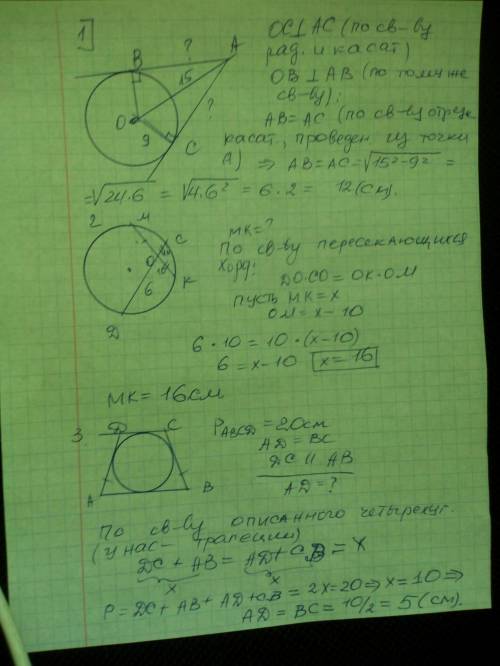 1]
B ? A
15
?
O
9
C
OC⊥AC (по св-ву
рад. и касат)
OB ⊥ AB (по тому же
св-ву);
AB=AC (по св-ву отрез
касат., проведен из точки
A) ⇒ AB=AC=√15²-9² =
=√24·6 = √4·6² = 6·2 = 12(см).
2
M
C
O
10
K
6
D
MK=?
По св-ву пересекающихся
хорд:
DO·CO=OK·OM
пусть MK=x
OM=x-10
6·10=10·(x-10)
6=x-10 x=16
MK=16см
3.
D C
A B
P ABCD =20см
AD=BC
DC || AB
AD=?
По св-ву описанного четырехуг.
(у нас - трапеции)
DC + AB = AD + CB = x
x x
P=DC+AB+AD+CB=2x=20⇒x=10⇒
AD=BC=10/2=5(см).